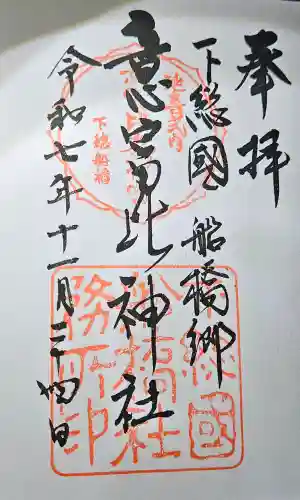 奉拝
下総國 船橋郷
意富比神社
令和七年十一月二十四日
延喜式内
下総船橋
総國
船橋社
務所印